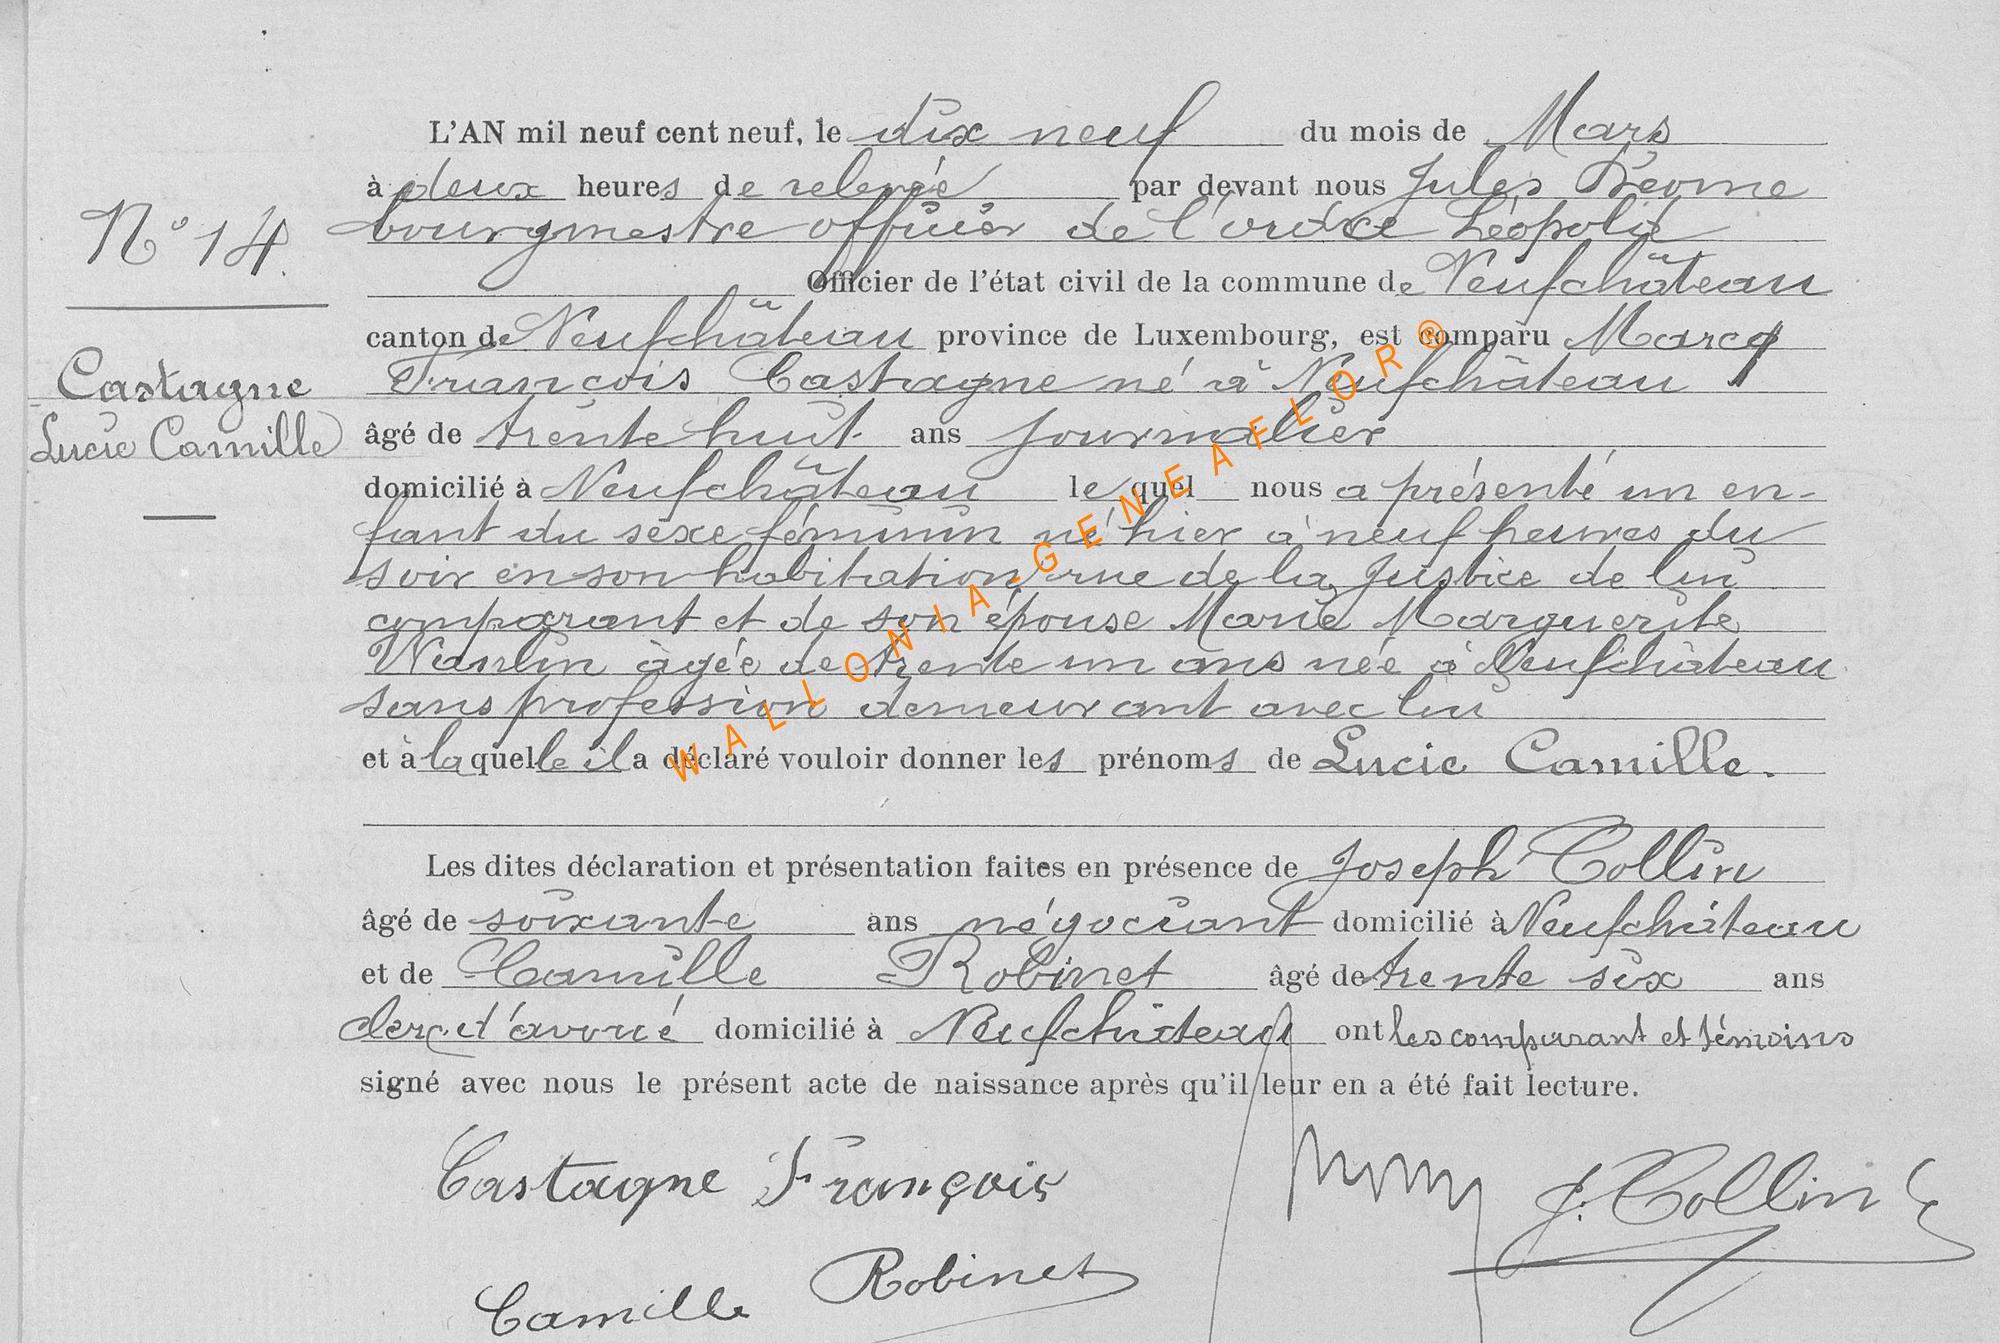 L'AN mil neuf cent neuf, le dix neuf du mois de Mars
à deux heures de relevée par devant nous Jules
N° 14
bourgmestre officier de l'ordre Léopold
Officier de l'état civil de la commune de Neufchâteau
canton de Neufchâteau province de Luxembourg, est comparu Marcq
Castagne
François Castagne né à Neufchâteau
Lucie Camille
âgé de trente huit ans journalier
domicilié à Neufchâteau le quel nous a présenté un en-
fant du sexe féminin né hier à neuf heures du
soir en son habitation rue de la Justice de lui
comparant et de son épouse Marie Marguerite
Wanlin âgée de trente un ans née à Neufchâteau
sans profession demeurant avec lui
et à laquelle il a déclaré vouloir donner les prénoms de Lucie Camille.
Les dites déclaration et présentation faites en présence de Joseph Collin
âgé de soixante ans négociant domicilié à Neufchâteau
et de Camille Robinet âgé de trente six ans
clerc d'avoué domicilié à Neufchâteau ont les comparant et témoins
signé avec nous le présent acte de naissance après qu'il leur en a été fait lecture.
Castagne François
J. Collin
Camille Robinet
WALLONIA-GENEAFLOR®